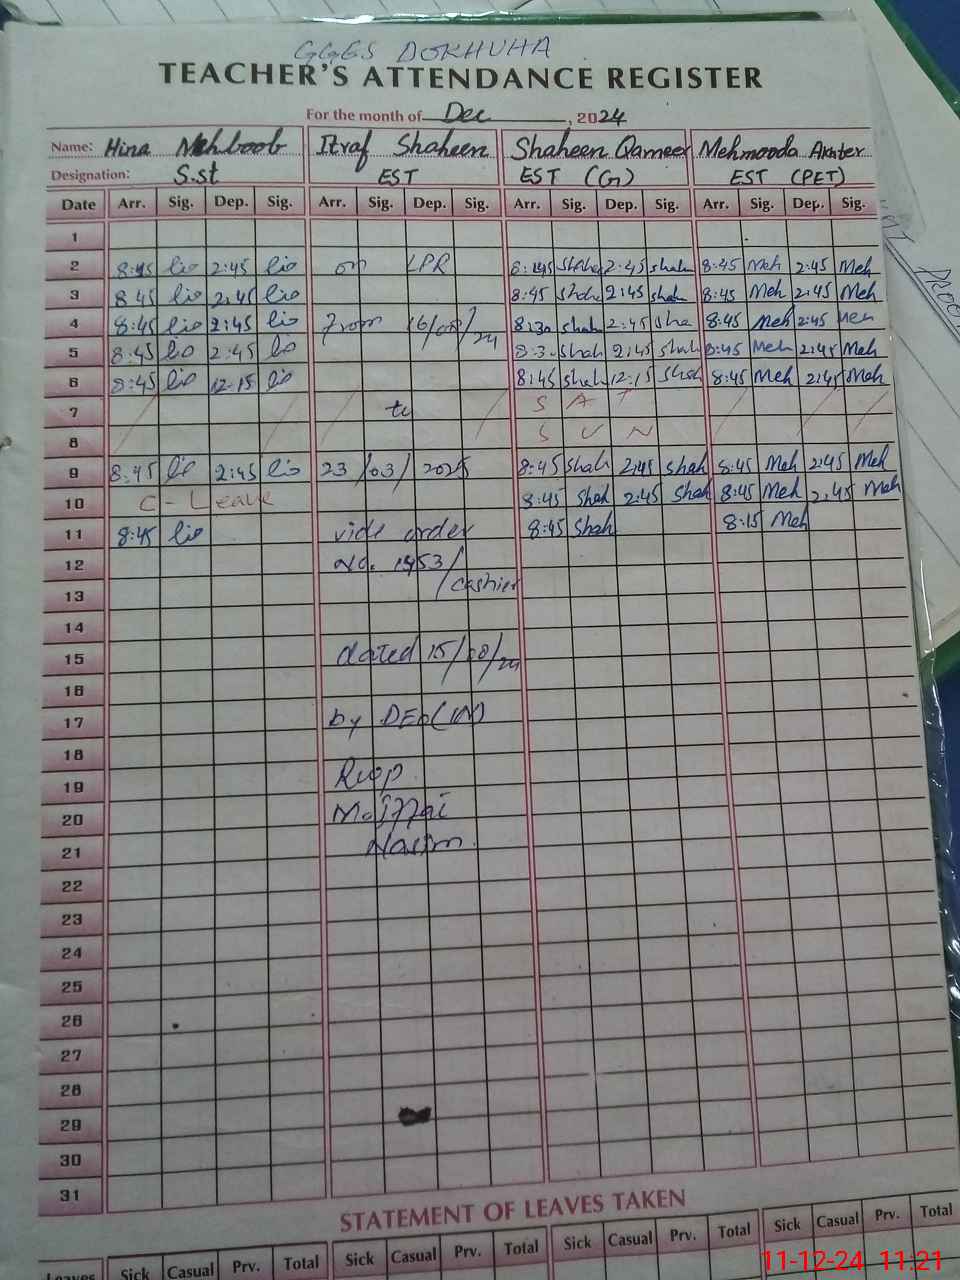 GGES DOKHUHA
TEACHER'S ATTENDANCE REGISTER
For the month of Dec, 2024
Name: Hina Mehboob Itraf Shaheen Shaheen Qameer Mehmooda Akhter
Designation: S.st EST EST (G) EST (PET)
Date Arr. Sig. Dep. Sig. Arr. Sig. Dep. Sig. Arr. Sig. Dep. Sig. Arr. Sig. Dep. Sig.
1
2 8:45 2:45 on LPR 8:45 Shah 2:45 Shah 8:45 Meh 2:45 Meh
3 8:45 2:45 8:45 Shah 2:45 Shah 8:45 Meh 2:45 Meh
4 8:45 2:45 From 16/08/24 8:30 Shah 2:45 Sha 8:45 Meh 2:45 Meh
5 8:45 2:45 8:3. Shah 2:45 Shah 8:45 Meh 2:45 Meh
6 8:45 12:15 8:45 Shah 12:15 Shah 8:45 Meh 2:45 Meh
7 to S A T
8 S U N
9 8:45 2:45 23/03/2025 8:45 Shah 2:45 Shah 8:45 Meh 2:45 Meh
10 C - Leave 8:45 Shah 2:45 Shah 8:45 Meh 2:45 Meh
11 8:45 vide order 8:45 Shah 8:15 Meh
12 No. 1953/
13 cashier
14
15 dated 15/08/24
16
17 by DEO
18
19
20
21
22
23
24
25
26
27
28
29
30
31
STATEMENT OF LEAVES TAKEN
Leaves Sick Casual Prv. Total Sick Casual Prv. Total Sick Casual Prv. Total Sick Casual Prv. Total
11-12-24 11:21